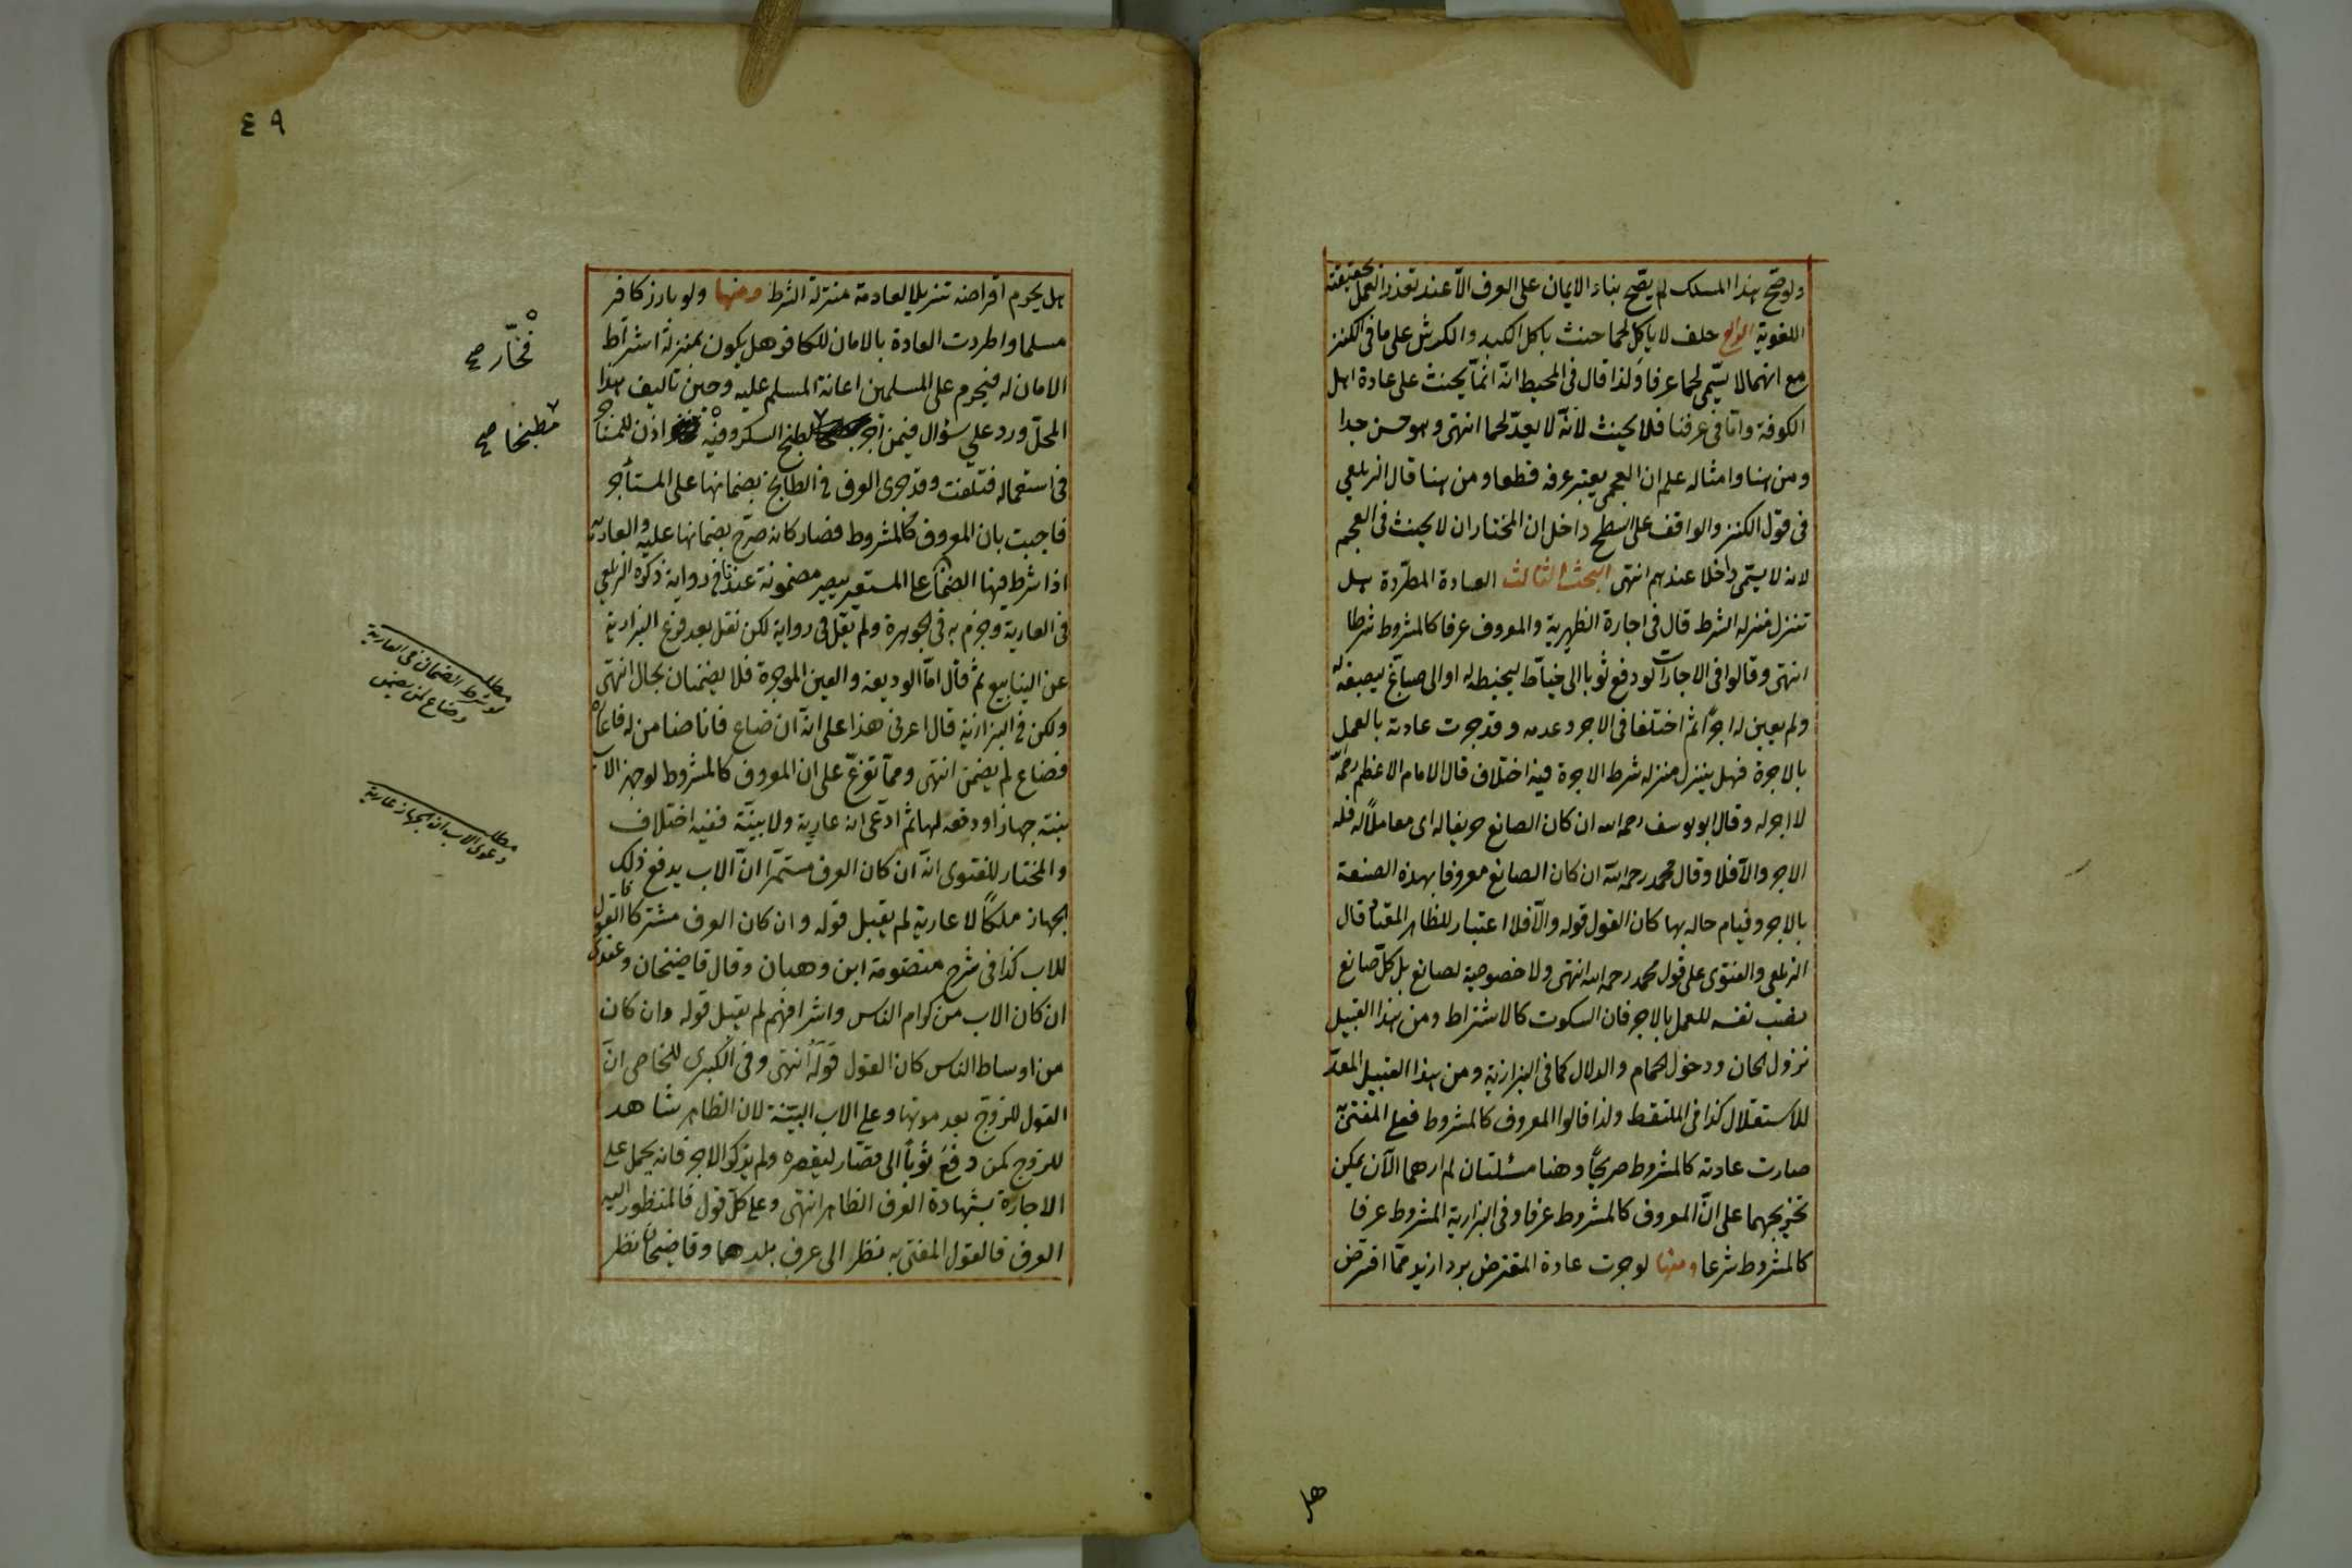 ولو صح هذا المسلك لم يصح بناء الايمان على العرف الا عند تعذر العمل بحقيقته
اللغوية الرابع حلف لا ياكل لحما حنث باكل الكبد والكرش على ما فى الكنز
مع انهما لا يسمى لحما عرفا ولذا قال فى المحيط انه انما يحنث على عادة اهل
الكوفة واما فى عرفنا فلا يحنث لانه لا يعد لحما انتهى وهو حسن جدا
ومن هنا وامثاله علم ان العجمى يعتبر عرفه قطعا ومن هنا قال الزيلعي
فى قول الكنز والواقف على السطح داخل ان المختار ان لا يحنث فى العجم
لانه لا يسمى داخلا عندهم انتهى البحث الثالث العادة المطردة هل
تنزل منزلة الشرط قال فى اجارة الظهيرية والمعروف عرفا كالمشروط شرطا
انتهى وقالوا فى الاجارات لو دفع ثوبا الى خياط ليخيطه له او الى صباغ ليصبغه له
ولم يعين له اجرا ثم اختلفا فى الاجر وعدمه وقد جرت عادته بالعمل
بالاجرة فهل ينزل منزلة شرط الاجرة فيه اختلاف قال الامام الاعظم رحمه الله
لا اجر له وقال ابو يوسف رحمه الله ان كان الصانع حريفا له اى معاملا له فله
الاجر والا فلا وقال محمد رحمه الله ان كان الصانع معروفا بهذه الصنعة
بالاجر وقيام حاله بها كان القول قوله والا فلا اعتبار للظاهر المعتاد قال
الزيلعي والفتوى على قول محمد رحمه الله انتهى ولا خصوصية لصانع بل كل صانع
نصب نفسه للعمل بالاجر فان السكوت كالاشتراط ومن هذا القبيل
نزول الخان ودخول الحمام والدلال كما فى البزازية ومن هذا القبيل المعد
للاستغلال كذا فى الملتقط ولذا قالوا المعروف كالمشروط فعلى المفتى به
صارت عادته كالمشروط صريحا وهنا مسئلتان لم ارهما الآن يمكن
تخريجهما على ان المعروف كالمشروط عرفا وفى البزازية المشروط عرفا
كالمشروط شرعا ومنها لو جرت عادة المقترض برد ازيد مما اقترض
هل
٤٩
هل يحرم اقراضه تنزيلا لعادته منزلة الشرط ومنها ولو بارز كافر
مسلما واطردت العادة بالامان للكافر هل يكون بمنزلة اشتراط
الامان له فيحرم على المسلمين اعانة المسلم عليه وحين تاليف هذا
المحل ورد علي سؤال فيمن آجر لطبخ السكر وفيه اذن للمستاجر
فى استعماله فتلفت وقد جرى العرف فى المطابخ بضمانها على المستأجر
فاجبت بان المعروف كالمشروط فصار كانه صرح بضمانها عليه والعارية
اذا شرط فيها الضمان على المستعير يصير مضمونة عندنا فى رواية ذكره الزيلعي
فى العارية وجزم به فى الجوهرة ولم يقل فى رواية لكن نقل بعد فرع البزازية
عن الينابيع ثم قال اما الوديعة والعين المؤجرة فلا يضمنان بحال انتهى
ولكن فى البزازية قال اعرنى هذا على انه ان ضاع فانا ضامن له فاعاره
فضاع لم يضمن انتهى ومما تفرع على ان المعروف كالمشروط لو جهز الاب
بنته جهازا ودفعه لها ثم ادعى انه عارية ولا بينة ففيه اختلاف
والمختار للفتوى انه ان كان العرف مستمرا ان الاب يدفع ذلك
الجهاز ملكا لا عارية لم يقبل قوله وان كان العرف مشتركا فالقول
للاب كذا فى شرح منظومة ابن وهبان وقال قاضيخان وعندى
ان كان الاب من كرام الناس واشرافهم لم يقبل قوله وان كان
من اوساط الناس كان القول قوله انتهى وفى الكبرى للخاصى ان
القول للزوج بعد موتها وعلى الاب البينة لان الظاهر شاهد
للزوج كمن دفع ثوبا الى قصار ليقصره ولم يذكر الاجر فانه يحمل على
الاجارة بشهادة العرف الظاهر انتهى وعلى كل قول فالمنظور اليه
العرف فالقول المفتى به نظر الى عرف بلدهما وقاضيخان نظر
فخار صح
مطبخا صح
مطلب
لو شرط الضمان فى العارية
وضاع لمن يضمن
مطلب
دعوى الاب ان الجهاز عارية